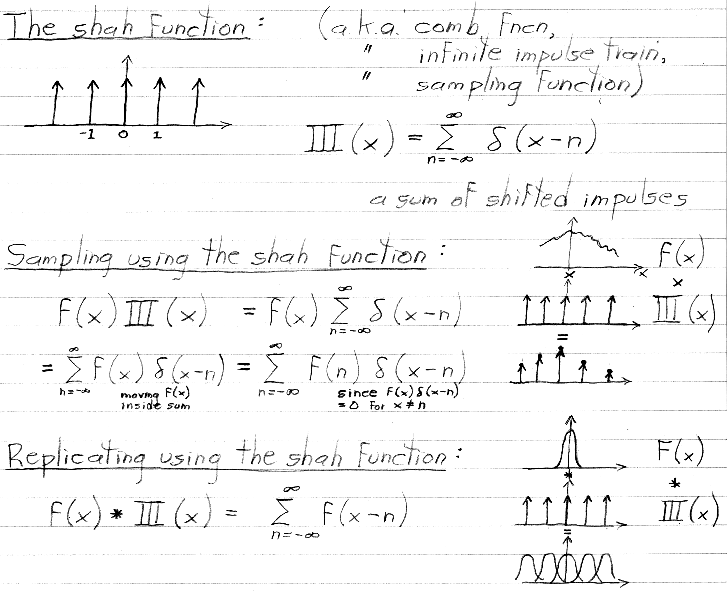 The shah Function : (a.k.a. comb Fncn,
" infinite impulse train,
" sampling Function)
-1 0 1
III(x) = ∞ Σ n=-∞ δ(x-n)
a sum of shifted impulses
Sampling using the shah Function :
F(x) III(x) = F(x) ∞ Σ n=-∞ δ(x-n)
= ∞ Σ n=-∞ F(x) δ(x-n) = ∞ Σ n=-∞ F(n) δ(x-n)
moving F(x) since F(x)δ(x-n)
inside sum = 0 For x ≠ n
x F(x)
x x
III(x)
=
Replicating using the shah Function :
F(x) * III(x) = ∞ Σ n=-∞ F(x-n)
F(x)
* *
III(x)
=